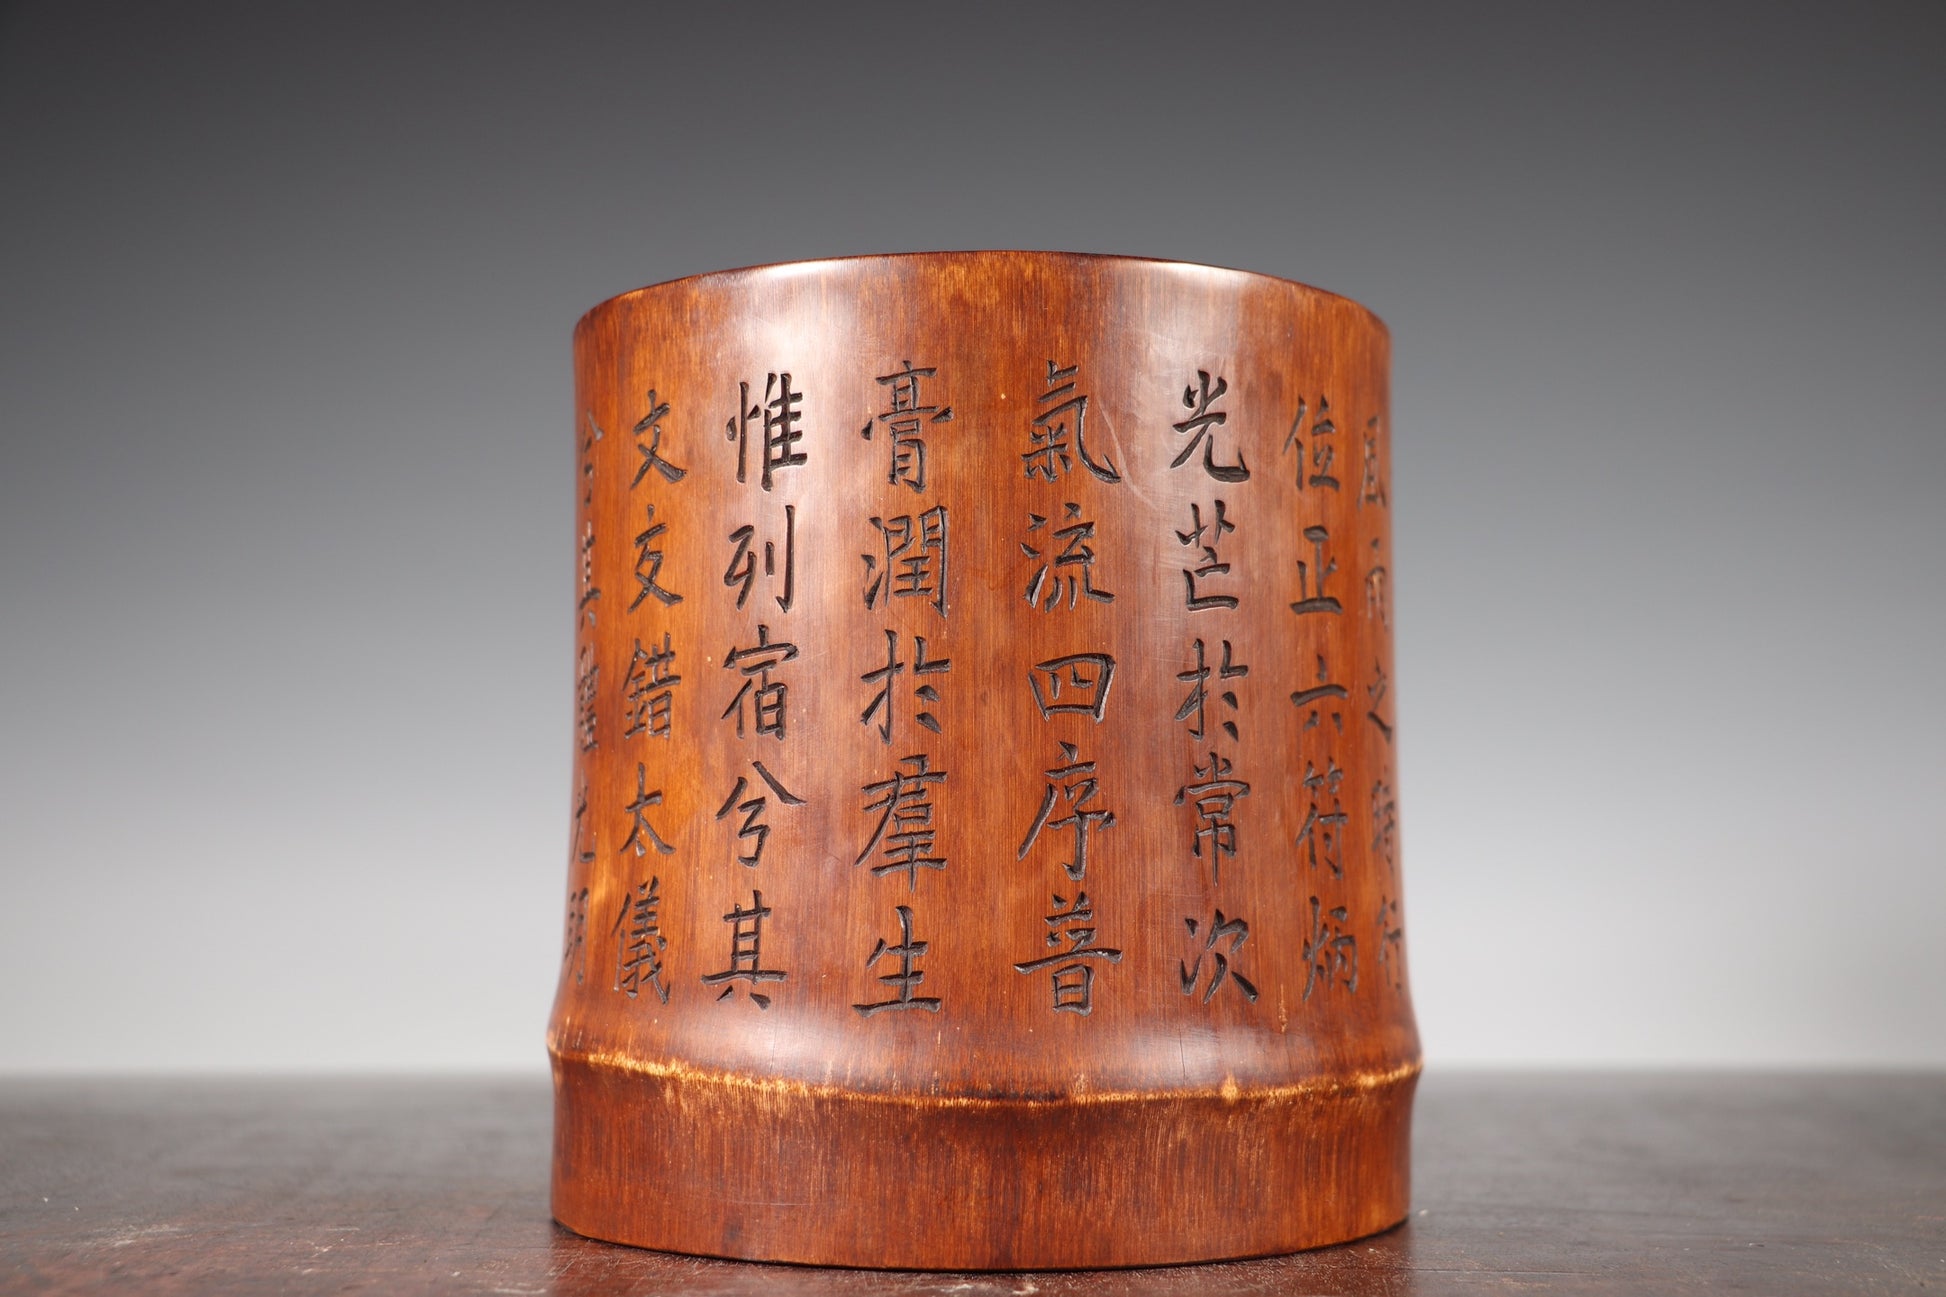 風雨之時行
位正六符炳
光芒於常次
氣流四序普
膏潤於羣生
惟列宿兮其
文友錯太儀
兮其耀光明